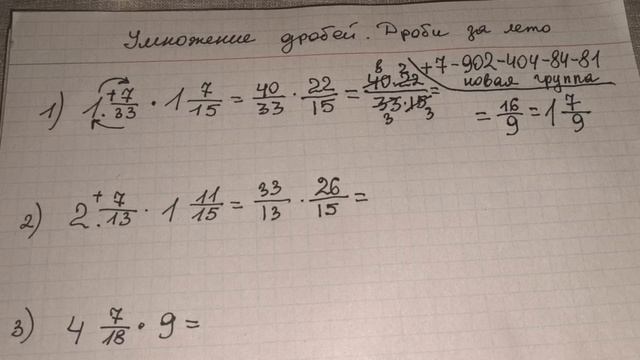 Умножение дробей. Дроби за лето
+7-902-404-84-81
новая группа
1) 1 · + 7/33 · 1 7/15 = 40/33 · 22/15 = 40·22/33·15 = 8 2 3 3
= 16/9 = 1 7/9
2) 2 · + 7/13 · 1 11/15 = 33/13 · 26/15 =
3) 4 7/18 · 9 =